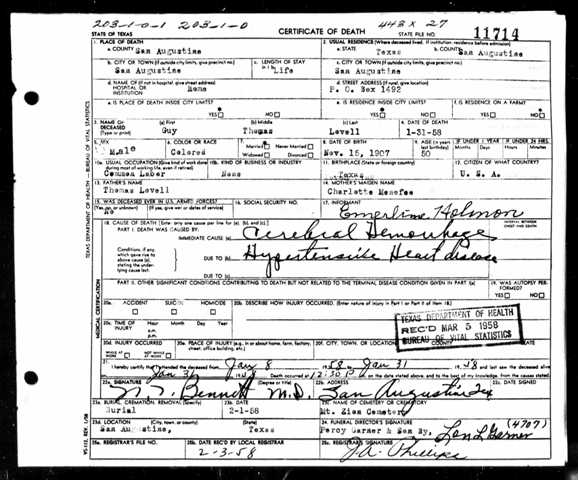 203-1-0-1 203-1-0 443 X 27
STATE OF TEXAS CERTIFICATE OF DEATH STATE FILE NO. 11714
1. PLACE OF DEATH 2. USUAL RESIDENCE (Where deceased lived. If institution, residence before admission)
a. COUNTY San Augustine a. STATE Texas b. COUNTY San Augustine
b. CITY OR TOWN (If outside city limits, give precinct no.) c. LENGTH OF STAY c. CITY OR TOWN (If outside city limits, give precinct no.)
San Augustine Life San Augustine
d. NAME OF (If not in hospital, give street address) HOSPITAL OR INSTITUTION d. STREET ADDRESS (If rural, give location)
P. O. Box 1492
e. IS PLACE OF DEATH INSIDE CITY LIMITS? e. IS RESIDENCE INSIDE CITY LIMITS? f. IS RESIDENCE ON A FARM?
YES NO YES NO YES NO
3. NAME OF DECEASED (Type or print) (a) First (b) Middle (c) Last 4. DATE OF DEATH
Guy Thomas Lovell 1-31-58
5. SEX 6. COLOR OR RACE 7. Married Never Married Widowed Divorced 8. DATE OF BIRTH 9. AGE (In years last birthday) IF UNDER 1 YEAR IF UNDER 24 HRS.
Male Colored Nov. 15, 1907 50
10a. USUAL OCCUPATION (Give kind of work done during most of working life, even if retired) 10b. KIND OF BUSINESS OR INDUSTRY 11. BIRTHPLACE (State or foreign country) 12. CITIZEN OF WHAT COUNTRY?
Common Labor Texas U. S. A.
13. FATHER'S NAME 14. MOTHER'S MAIDEN NAME
Thomas Lovell Charlotte Menefee
15. WAS DECEASED EVER IN U.S. ARMED FORCES? 16. SOCIAL SECURITY NO. 17. INFORMANT
(Yes, no, or unknown) (If yes, give war or dates of service)
No
18. CAUSE OF DEATH [Enter only one cause per line for (a), (b), and (c).] INTERVAL BETWEEN ONSET AND DEATH
PART I. DEATH WAS CAUSED BY:
IMMEDIATE CAUSE (a) Cerebral Hemorrhage
Conditions, if any, which gave rise to above cause (a), stating the underlying cause last.
DUE TO (b) Hypertensive Heart disease
DUE TO (c)
PART II. OTHER SIGNIFICANT CONDITIONS CONTRIBUTING TO DEATH BUT NOT RELATED TO THE TERMINAL DISEASE CONDITION GIVEN IN PART I(a) 19. WAS AUTOPSY PERFORMED?
YES NO
20a. ACCIDENT SUICIDE HOMICIDE 20b. DESCRIBE HOW INJURY OCCURRED. (Enter nature of injury in Part I or Part II of item 18.)
20c. TIME OF INJURY Hour Month Day Year
a.m.
p.m.
20d. INJURY OCCURRED 20e. PLACE OF INJURY (e.g., in or about home, farm, factory, street, office building, etc.) 20f. CITY, TOWN, OR LOCATION COUNTY STATE
WHILE AT WORK NOT WHILE AT WORK
TEXAS DEPARTMENT OF HEALTH
REC'D MAR 5 1958
BUREAU OF VITAL STATISTICS
21. I hereby certify that I attended the deceased from Jan 8 1958 Jan 31 1958
Jan 31 Death occurred at 12:30 P m. on the date stated above, and to the best of my knowledge, from the causes stated.
22a. SIGNATURE (Degree or title) 22b. ADDRESS 22c. DATE SIGNED
Bennett M.D. San Augustine Tex
23a. BURIAL, CREMATION, REMOVAL (Specify) 23b. DATE 23c. NAME OF CEMETERY OR CREMATORY
Burial 2-1-58 Mt. Zion Cemetery
23d. LOCATION (City, town, or county) (State) 24. FUNERAL DIRECTOR'S SIGNATURE (4707)
San Augustine, Texas Percy Garner & Son By, Lon L Garner
25a. REGISTRAR'S FILE NO. 25b. DATE REC'D BY LOCAL REGISTRAR 25c. REGISTRAR'S SIGNATURE
2-3-58 J.A. Phillips
TEXAS DEPARTMENT OF HEALTH — BUREAU OF VITAL STATISTICS
MEDICAL CERTIFICATION
VS-112, REV. 1/58